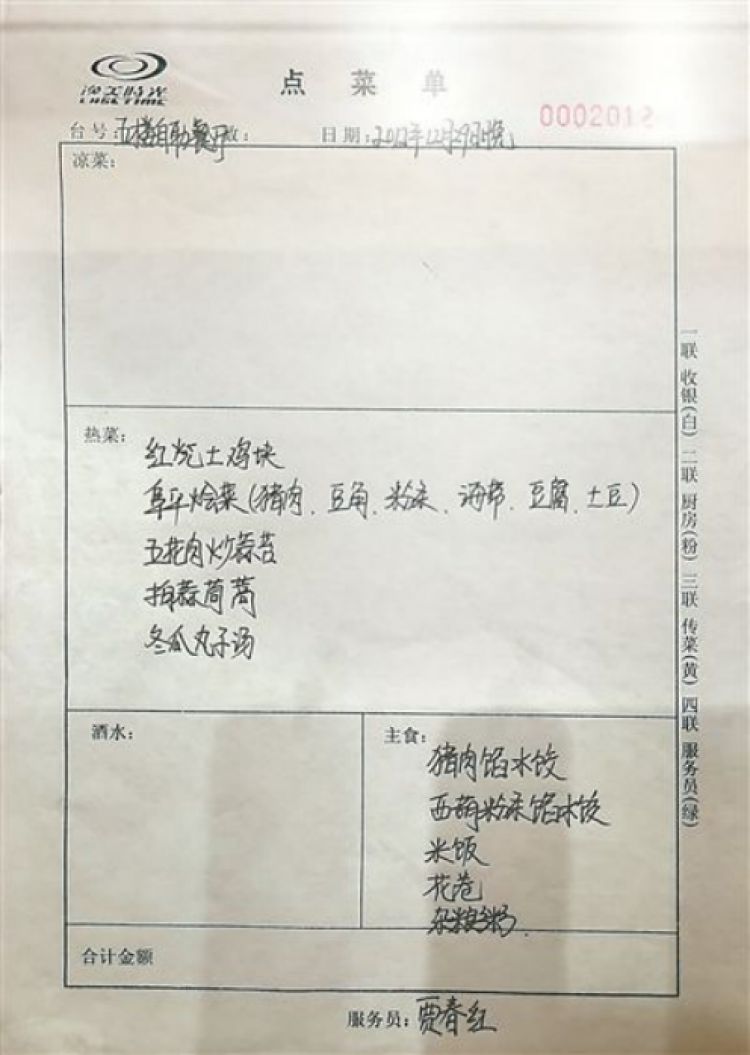 点菜单
0002012
台号：五楼自助餐厅 数： 日期：2012年12月29日晚
凉菜：
热菜：
红烧土鸡块
阜平烩菜（猪肉、豆角、粉条、海带、豆腐、土豆）
五花肉炒蒜苔
拍蒜茼蒿
冬瓜丸子汤
酒水：
主食：
猪肉馅水饺
西葫粉条馅水饺
米饭
花卷
杂粮粥.
合计金额
服务员：贾春红
一联 收银(白) 二联 厨房(粉) 三联 传菜(黄) 四联 服务员(绿)